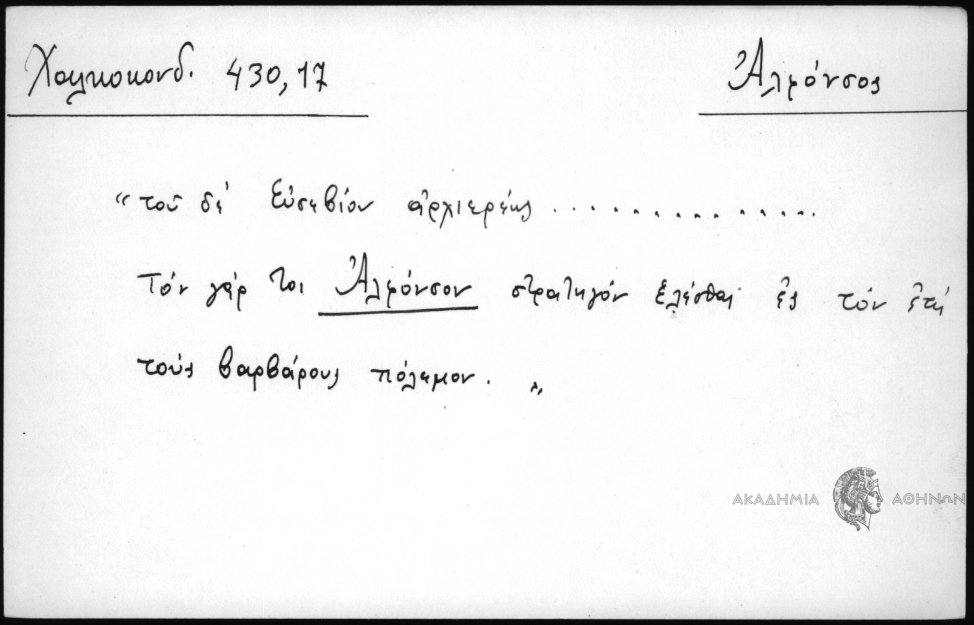 Χαλκοκονδ. 430,17
Ἀλφόνσος
“τοῦ δὲ Εὐσεβίου ἀρχιερέως ...............
Τόν γάρ τοι Ἀλφόνσον στρατηγόν ἑλέσθαι ἐς τόν ἐπί
τούς βαρβάρους πόλεμον. „
ΑΚΑΔΗΜΙΑ ΑΘΗΝΩΝ